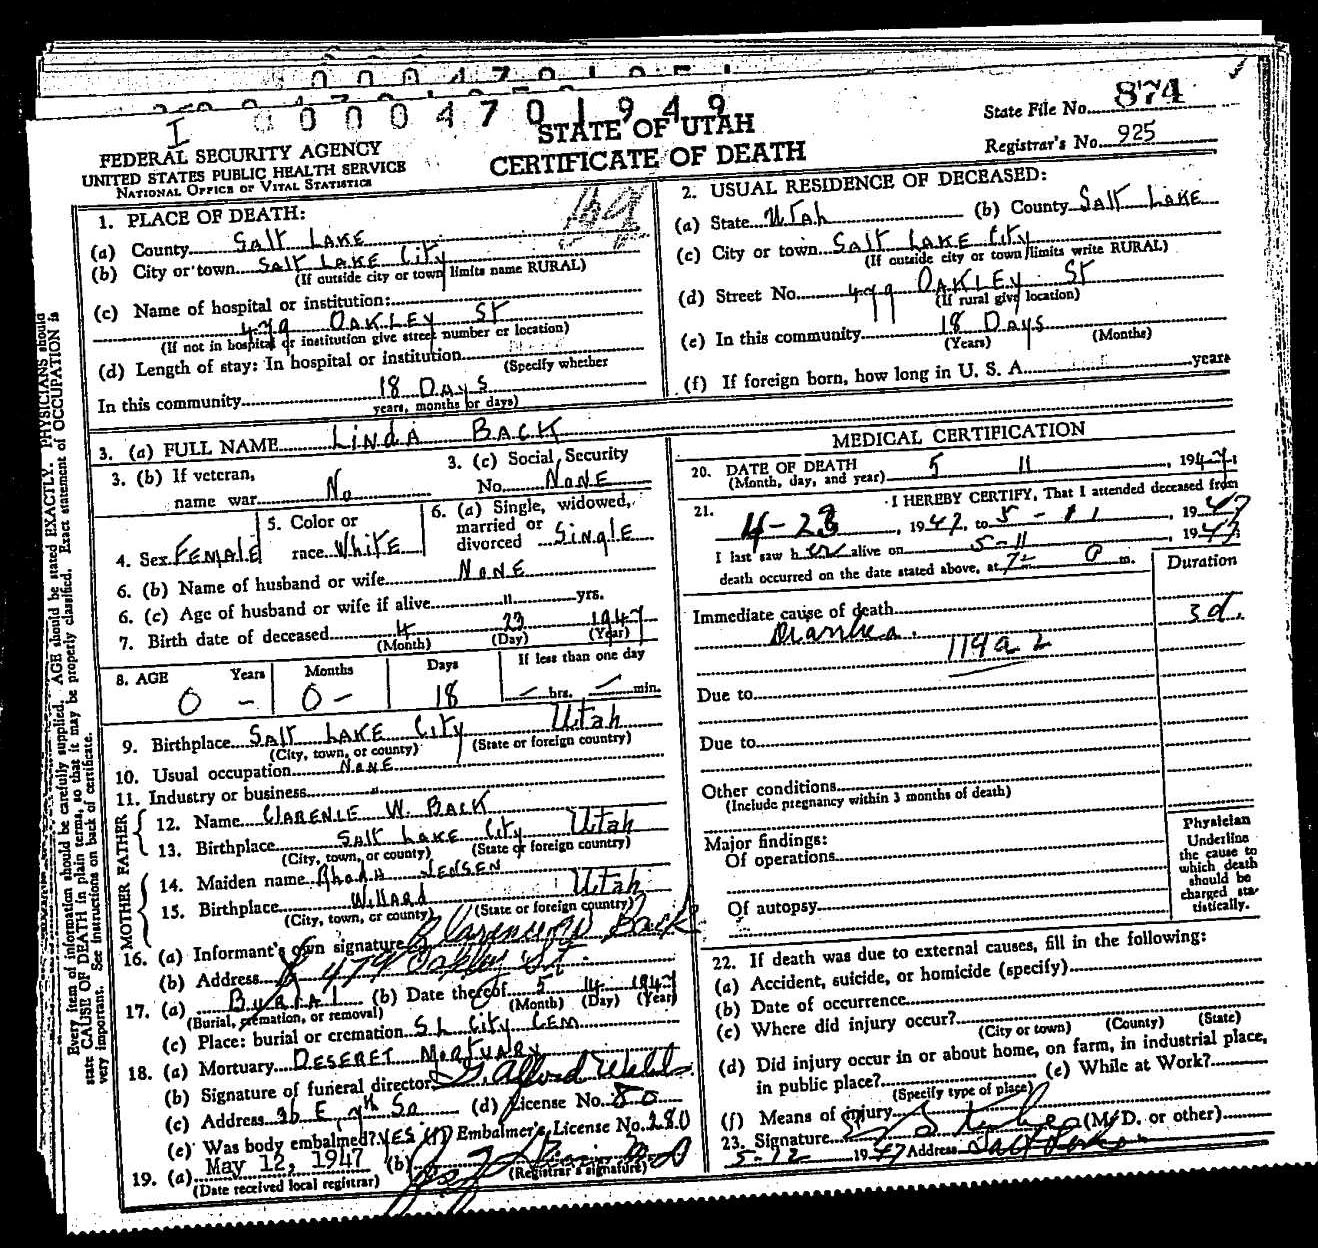 0 0 0 0 4 7 0 1 9 4 9
I
STATE OF UTAH
CERTIFICATE OF DEATH
State File No. 874
Registrar's No. 925
FEDERAL SECURITY AGENCY
UNITED STATES PUBLIC HEALTH SERVICE
NATIONAL OFFICE OF VITAL STATISTICS
1. PLACE OF DEATH:
(a) County SALT LAKE
(b) City or town SALT LAKE CITY
(If outside city or town limits name RURAL)
(c) Name of hospital or institution:
479 OAKLEY ST
(If not in hospital or institution give street number or location)
(d) Length of stay: In hospital or institution
(Specify whether
In this community 18 DAYS
years, months or days)
2. USUAL RESIDENCE OF DECEASED:
(a) State UTAH (b) County SALT LAKE
(c) City or town SALT LAKE CITY
(If outside city or town limits write RURAL)
(d) Street No. 479 OAKLEY ST
(If rural give location)
(e) In this community 18 DAYS
(Years) (Months)
(f) If foreign born, how long in U. S. A. years
3. (a) FULL NAME LINDA BACK
3. (b) If veteran,
name war No
3. (c) Social Security
No. NONE
4. Sex FEMALE
5. Color or
race WHITE
6. (a) Single, widowed,
married or
divorced SINGLE
6. (b) Name of husband or wife NONE
6. (c) Age of husband or wife if alive " yrs.
7. Birth date of deceased 4 23 1947
(Month) (Day) (Year)
8. AGE Years Months Days If less than one day
0 - 0 - 18 - hrs. - min.
9. Birthplace SALT LAKE CITY Utah
(City, town, or county) (State or foreign country)
10. Usual occupation NONE
11. Industry or business "
FATHER
12. Name CLARENCE W. BACK
13. Birthplace SALT LAKE CITY Utah
(City, town, or county) (State or foreign country)
MOTHER
14. Maiden name RHODA JENSEN
15. Birthplace WILLARD Utah
(City, town, or county) (State or foreign country)
16. (a) Informant's own signature Clarence W Back
(b) Address 479 Oakley St.
17. (a) BURIAL (b) Date thereof 5 14 1947
(Burial, cremation, or removal) (Month) (Day) (Year)
(c) Place: burial or cremation S L CITY CEM
18. (a) Mortuary DESERET MORTUARY
(b) Signature of funeral director
(c) Address 36 E 7th So (d) License No. 80
(e) Was body embalmed? YES Embalmer's License No. 280
19. (a) May 12, 1947 (b)
(Date received local registrar) (Registrar's signature)
MEDICAL CERTIFICATION
20. DATE OF DEATH
(Month, day, and year) 5 11, 1947.
21. I HEREBY CERTIFY, That I attended deceased from
4-23, 1947, to 5-11, 1947
I last saw her alive on 5-11, 1947
death occurred on the date stated above, at P m.
Duration
Immediate cause of death 3 d.
Diarrhea.
119 a 2
Due to
Due to
Other conditions
(Include pregnancy within 3 months of death)
Major findings:
Of operations
Of autopsy
Physician
Underline
the cause to
which death
should be
charged sta-
tistically.
22. If death was due to external causes, fill in the following:
(a) Accident, suicide, or homicide (specify)
(b) Date of occurrence
(c) Where did injury occur?
(City or town) (County) (State)
(d) Did injury occur in or about home, on farm, in industrial place,
in public place? (e) While at Work?
(Specify type of place)
(f) Means of injury
23. Signature (M. D. or other)
5-12 1947 Address Salt Lake
Every item of information should be carefully supplied. AGE should be stated EXACTLY. PHYSICIANS should
state CAUSE OF DEATH in plain terms, so that it may be properly classified. Exact statement of OCCUPATION is
very important. See instructions on back of certificate.